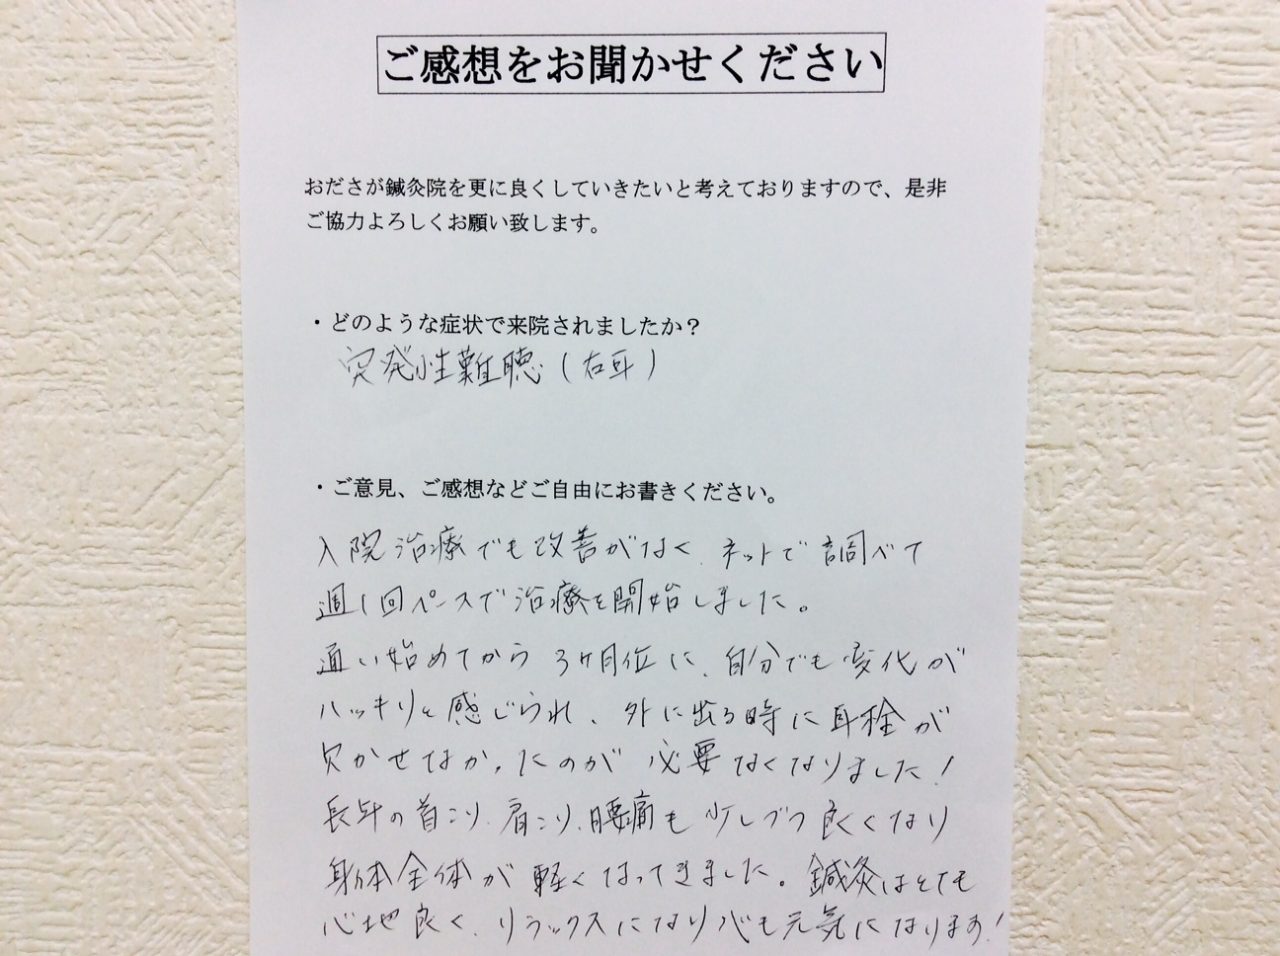 ご感想をお聞かせください
おださが鍼灸院を更に良くしていきたいと考えておりますので、是非
ご協力よろしくお願い致します。
・どのような症状で来院されましたか？
突発性難聴（右耳）
・ご意見、ご感想などご自由にお書きください。
入院治療でも改善がなく、ネットで調べて
週1回ペースで治療を開始しました。
通い始めてから3ヶ月位に、自分でも変化が
ハッキリと感じられ、外に出る時に耳栓が
欠かせなかったのが必要なくなりました!
長年の首こり、肩こり、腰痛も少しづつ良くなり
身体全体が軽くなってきました。鍼灸はとても
心地良く、リラックスになり心も元気になります!